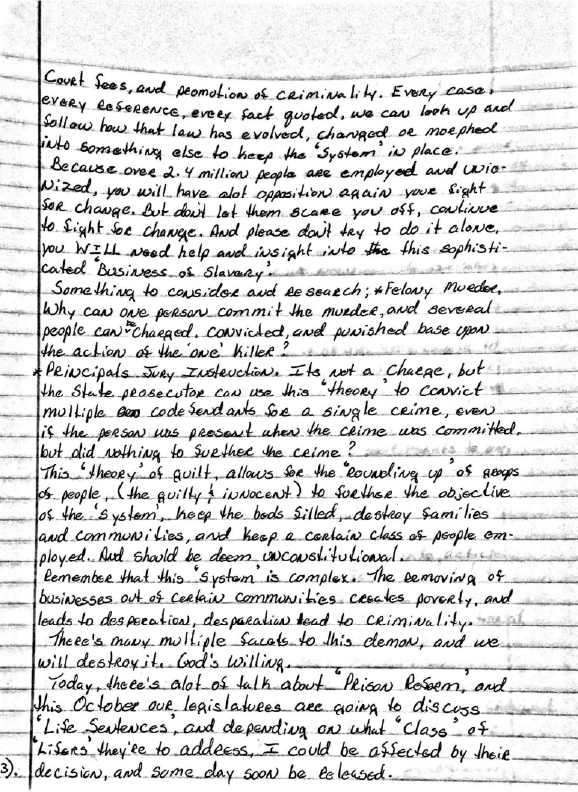 Court fees, and promotion of criminality. Every case,
every reference, every fact quoted, we can look up and
follow how that law has evolved, changed or morphed
into something else to keep the 'System' in place.
Because over 2.4 million people are employed and unio-
nized, you will have alot opposition again your fight
for change. But don't let them scare you off, continue
to fight for change. And please don't try to do it alone,
you WILL need help and insight into the this sophisti-
cated 'Business of Slavery'.
Something to consider and research; *Felony Murder,
Why can one person commit the murder, and several
people can be Charged, convicted, and punished base upon
the action of the 'one' killer?
* Principals Jury Instruction. Its not a Charge, but
the State prosecutor can use this 'theory' to convict
multiple codefendants for a single crime, even
if the person was present when the crime was committed,
but did nothing to further the crime?
This 'theory' of guilt, allows for the 'rounding up' of groups
of people, (the guilty & innocent) to further the objective
of the 'system', keep the beds filled, destroy families
and communities, and keep a contain class of people em-
ployed. And should be deem unconstitutional.
Remember that this 'system' is complex. The removing of
businesses out of certain communities creates poverty, and
leads to desperation, desparation lead to criminality.
There's many multiple facets to this demon, and we
will destroy it. God's willing.
Today, there's alot of talk about 'Prison Reform', and
this October our legislatures are going to discuss
'Life Sentences', and depending on what 'Class' of
'Lifers' they're to address, I could be affected by their
3). decision, and some day soon be released.